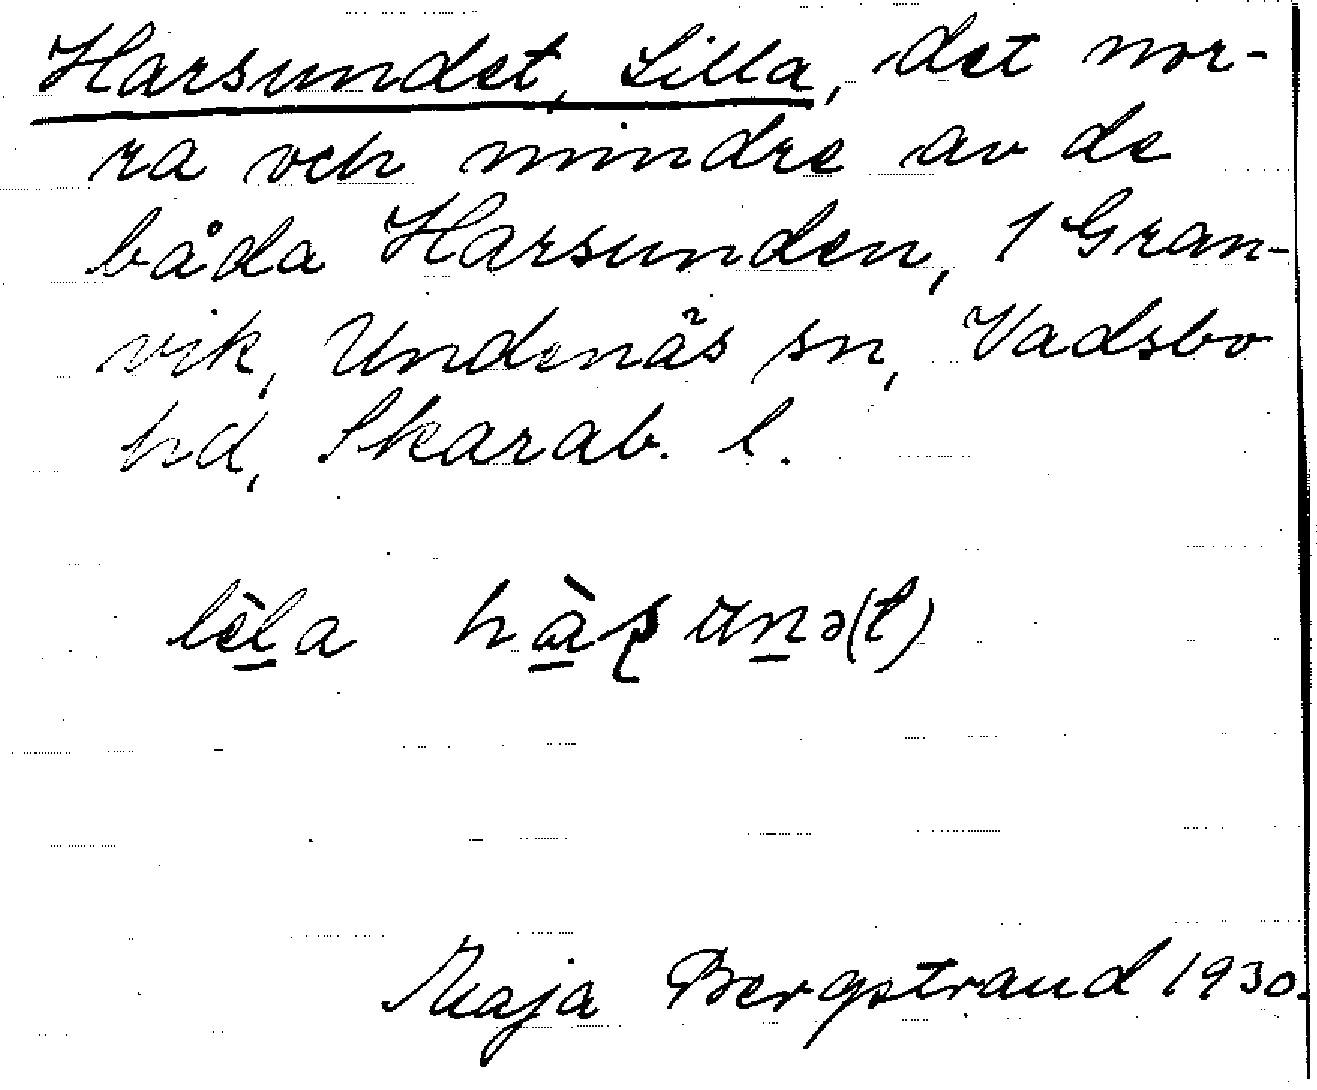 Harsundet, Lilla, det nor-
ra och mindre av de
båda Harsunden, 1 Gran-
vik, Undenäs sn, Vadsbo
hd, Skarab. l.
lèla hàʂunə(t)
Maja Bergstrand 1930.